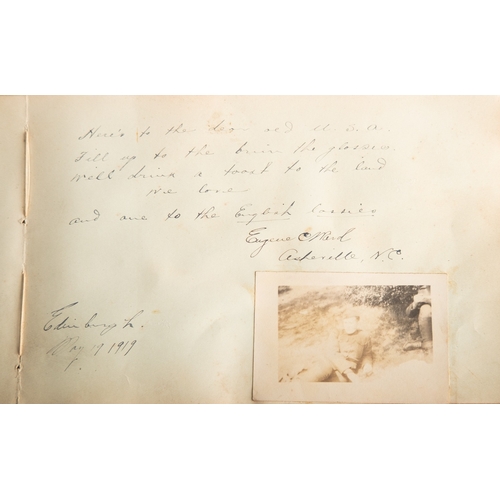 Here's to the dear old U. S. A.
Fill up to the brim the glasses
We'll drink a toast to the land
we love
and one to the English lassies
Eugene C
Asheville, N.C.
Edinburgh.
May 19 1919